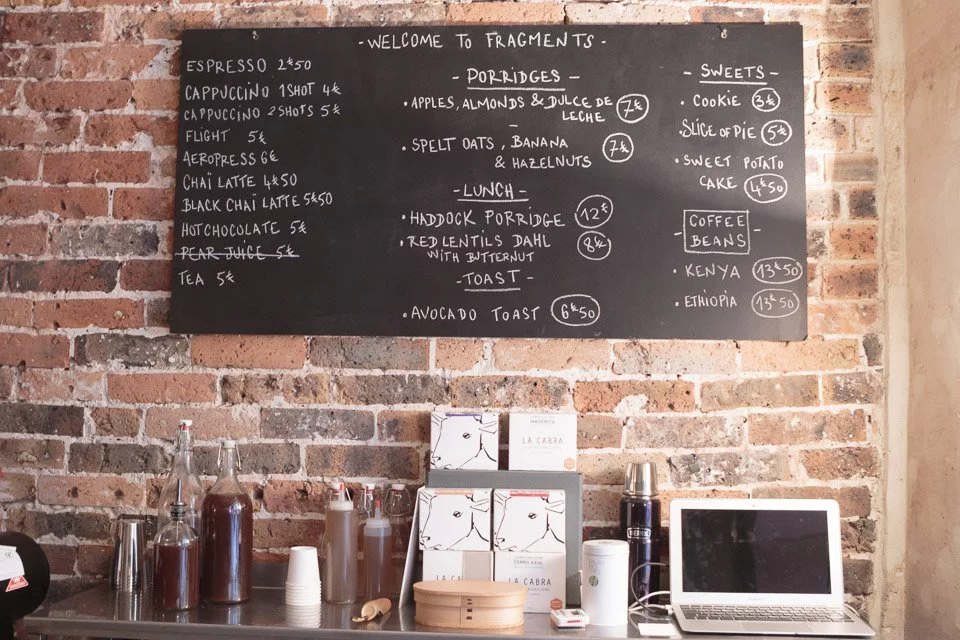 -WELCOME TO FRAGMENTS-
ESPRESSO 2€50
CAPPUCCINO 1SHOT 4€
CAPPUCCINO 2SHOTS 5€
FLIGHT 5€
AEROPRESS 6€
CHAÏ LATTE 4€50
BLACK CHAÏ LATTE 5€50
HOT CHOCOLATE 5€
PEAR JUICE 5€
TEA 5€
- PORRIDGES -
• APPLES, ALMONDS & DULCE DE
LECHE 7€
-
• SPELT OATS, BANANA
& HAZELNUTS 7€
-LUNCH-
• HADDOCK PORRIDGE 12€
• RED LENTILS DAHL
WITH BUTTERNUT 8€
-TOAST-
• AVOCADO TOAST 6€50
- SWEETS -
• COOKIE 3€
• SLICE OF PIE 5€
• SWEET POTATO
CAKE 4€50
- COFFEE
BEANS -
• KENYA 13€50
• ETHIOPIA 13€50
LA CABRA
CERRO AZUL
LA CA
LA CABRA